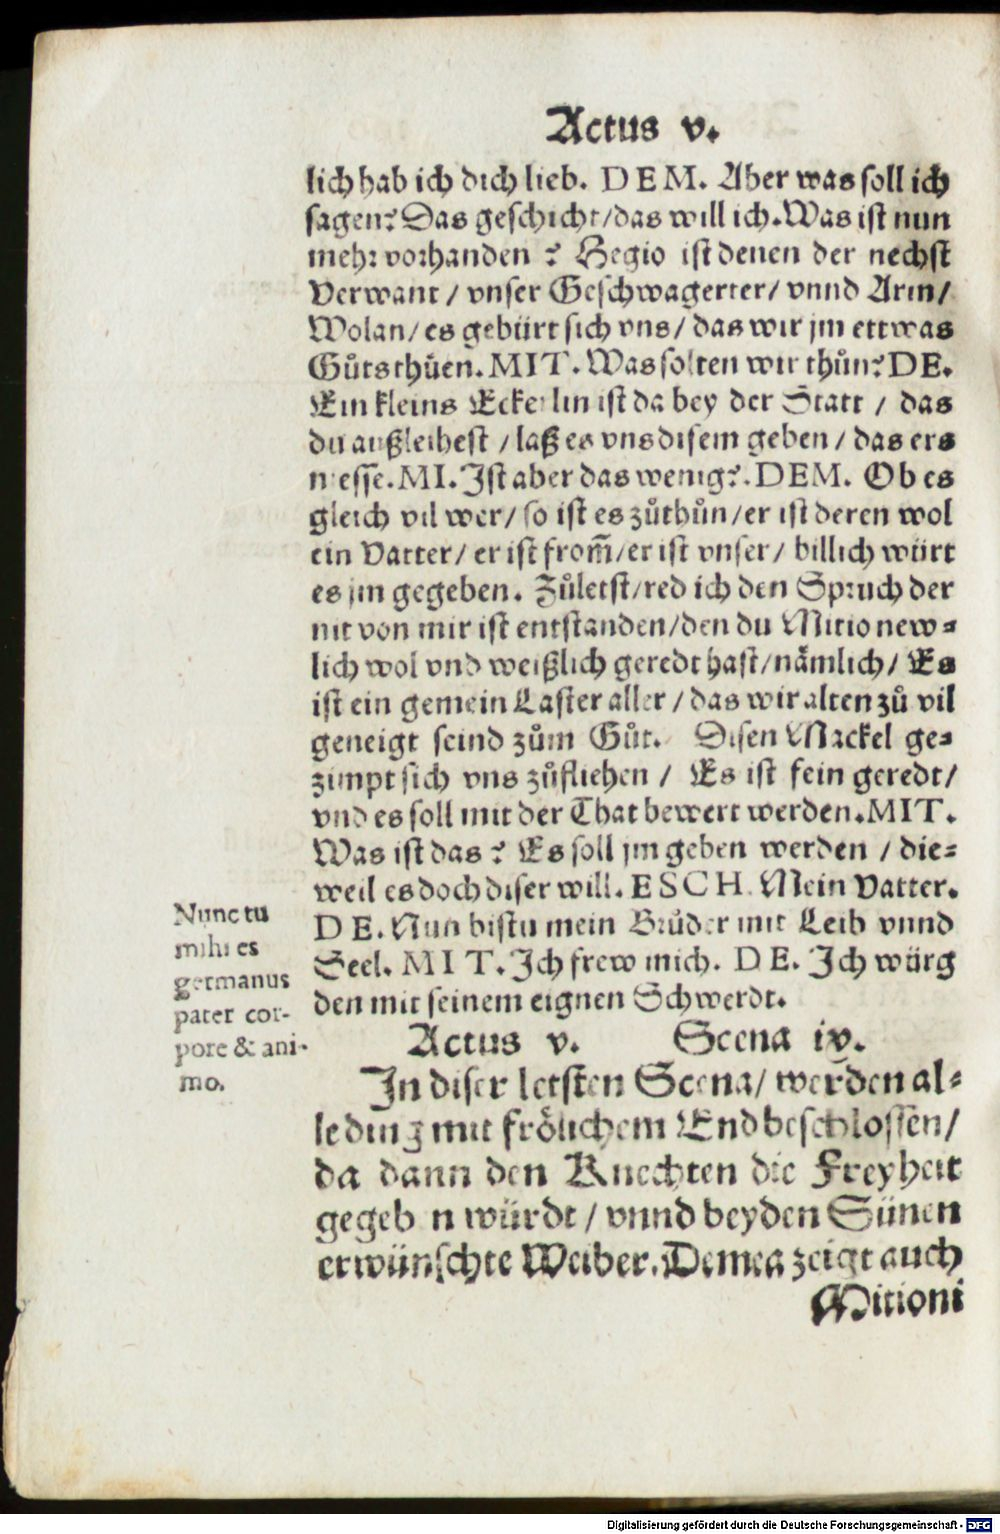 Actus v.
lich hab ich dich lieb. DEM. Aber was soll ich
sagen? Das geschicht/das will ich. Was ist nun
mehr vorhanden ? Hegio ist denen der nechst
Verwant / vnser Geschwagerter/ vnnd Arm/
Wolan/ es gebürt sich vns/ das wir jm ettwas
Gůts thůen. MIT. Was solten wir thůn? DE.
Ein kleins Eckerlin ist da bey der Statt / das
du außleihest / laß es vns disem geben / das ers
niesse. MI. Ist aber das wenig?. DEM. Ob es
gleich vil wer/ so ist es zůthůn/er ist deren wol
ein Vatter/ er ist from̃/er ist vnser/ billich würt
es jm gegeben. Zůletst/red ich den Spruch der
nit von mir ist entstanden/den du Mitio new-
lich wol vnd weißlich geredt hast/nämlich/ Es
ist ein gemein Laster aller / das wir alten zů vil
geneigt seind zům Gůt. Disen Mackel ge-
zimpt sich vns zůfliehen / Es ist fein geredt/
vnd es soll mit der That bewert werden. MIT.
Was ist das ? Es soll jm geben werden / die-
weil es doch diser will. ESCH. Mein Vatter.
DE. Nun bistu mein Brůder mit Leib vnnd
Seel. MIT. Ich frew mich. DE. Ich würg
den mit seinem eignen Schwerdt.
Nunc tu
mihi es
germanus
pater cor-
pore & ani-
mo.
Actus v. Scena iv.
In diser letsten Scena/ werden al-
le ding mit frölichem End beschlossen/
da dann den Knechten die Freyheit
gegeben würdt / vnnd beyden Sünen
erwünschte Weiber. Demea zeigt auch
Mitioni
Digitalisierung gefördert durch die Deutsche Forschungsgemeinschaft - DFG